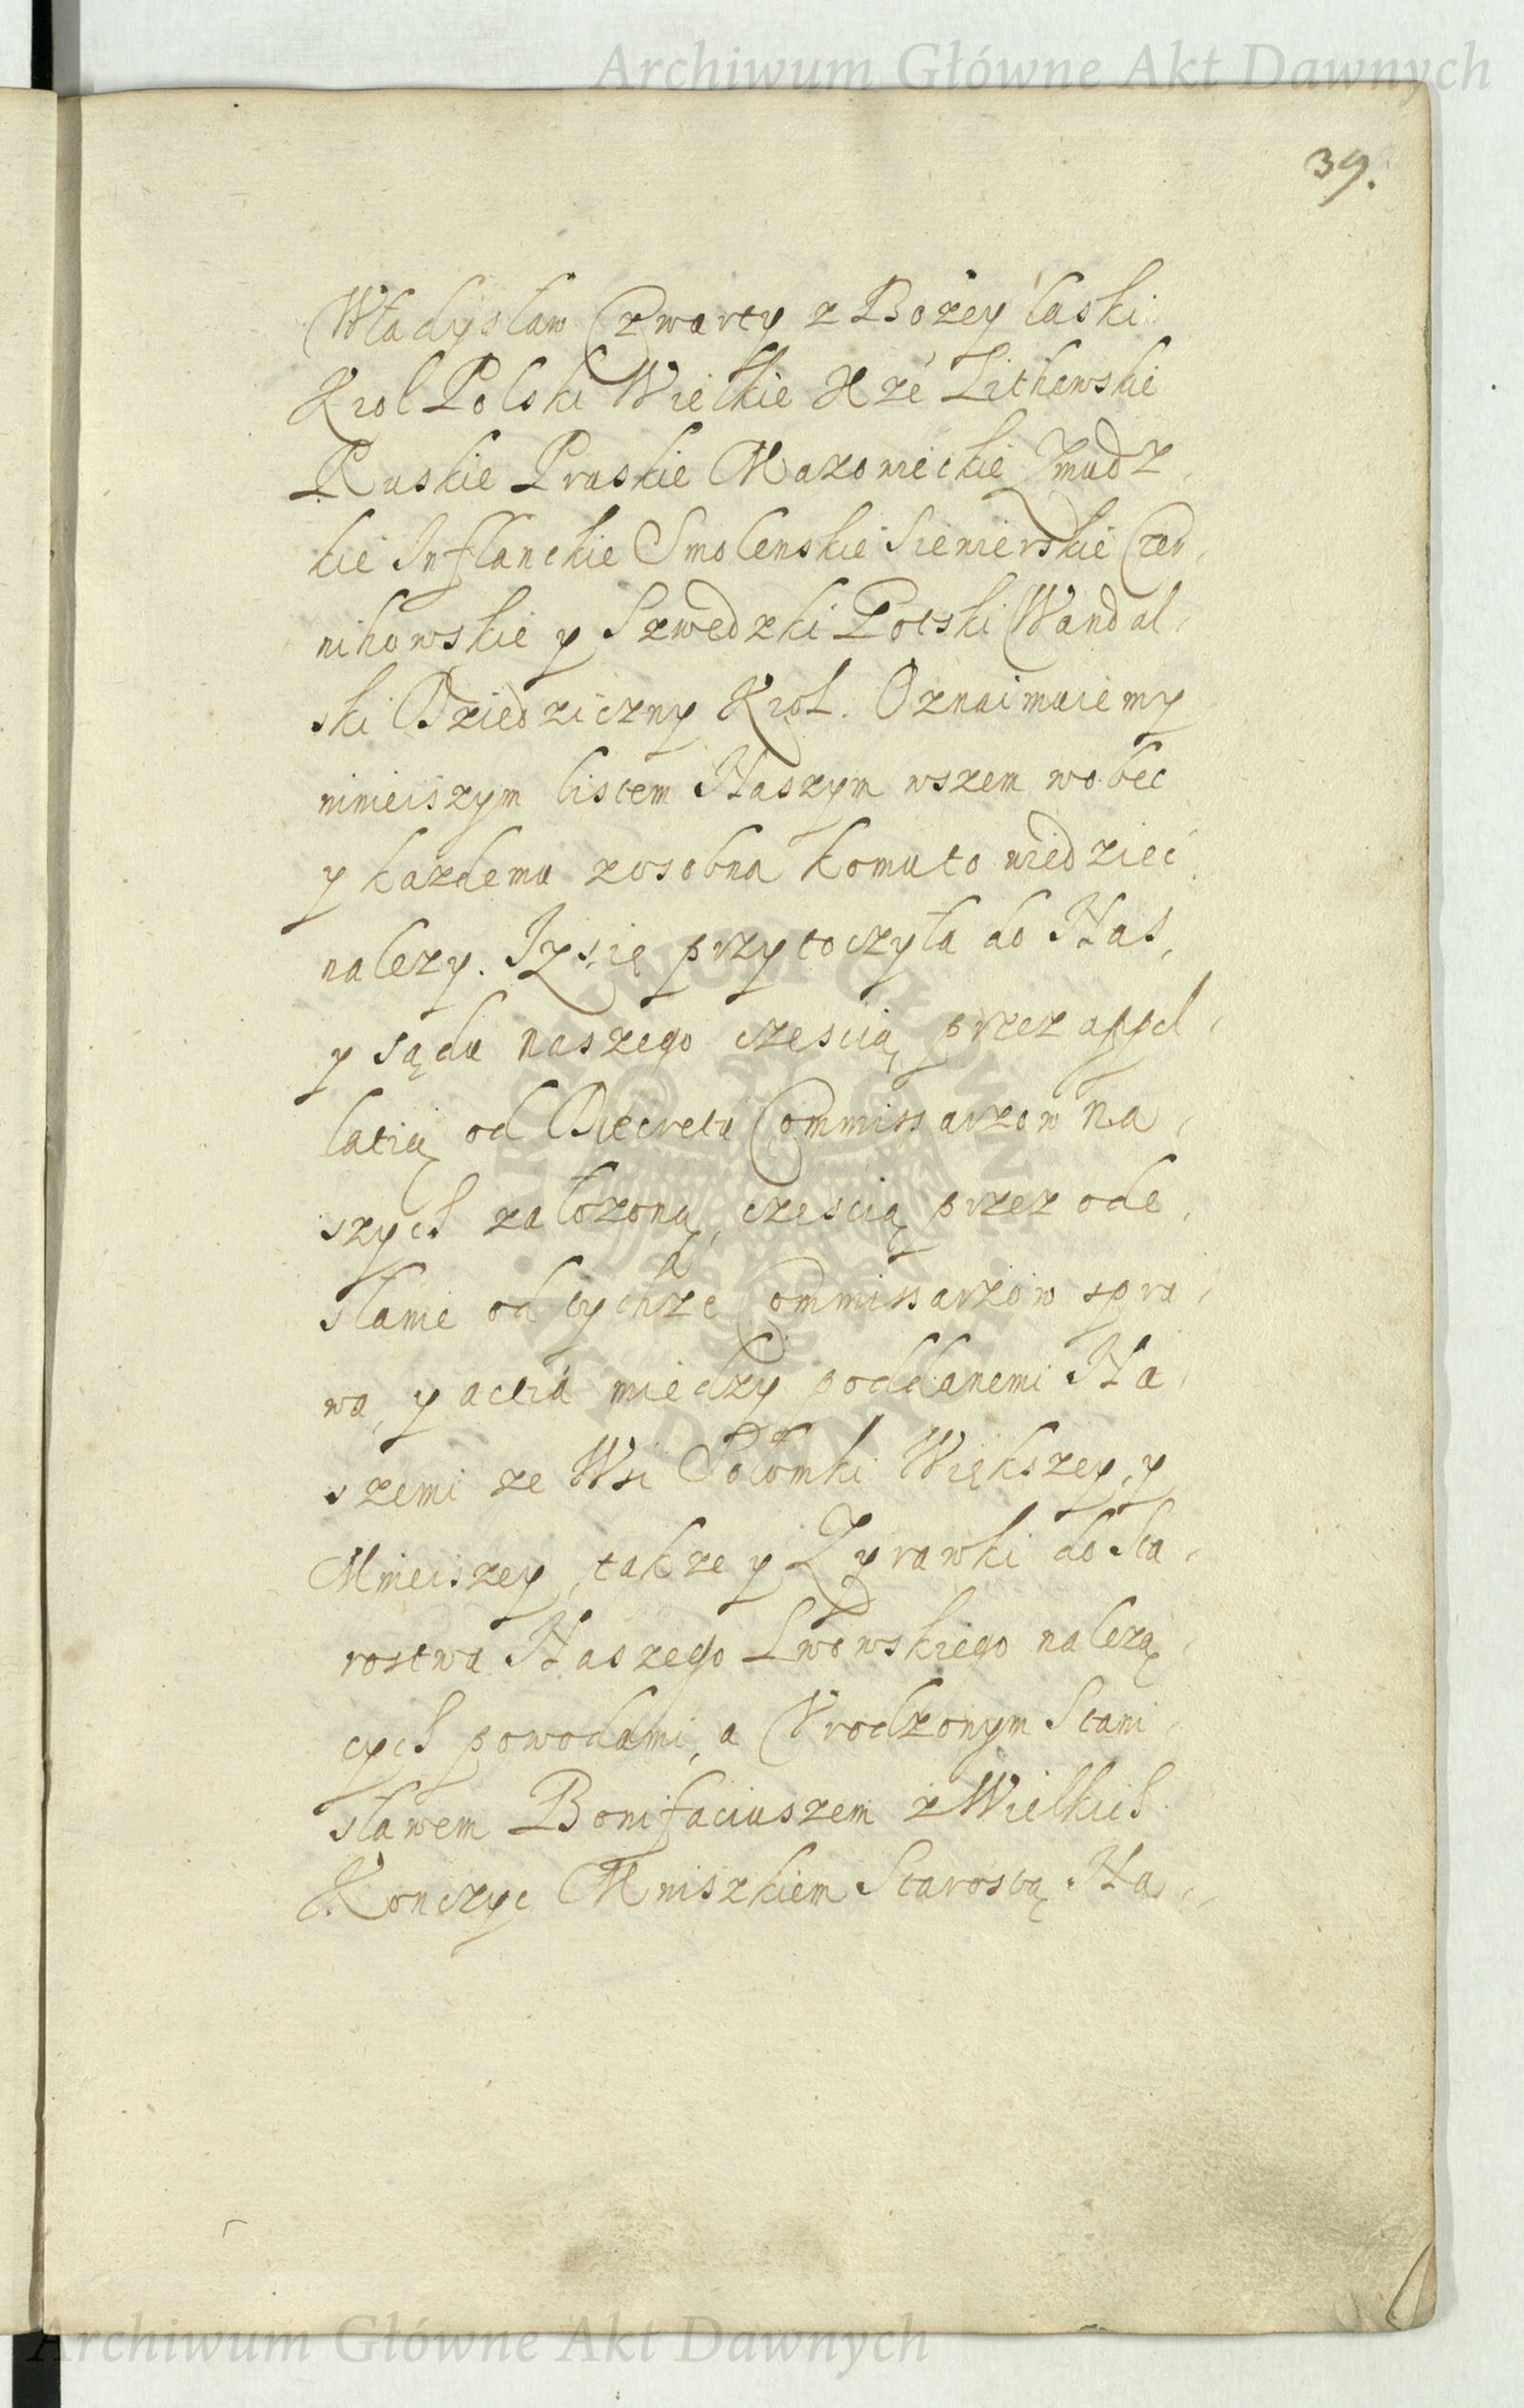 Archiwum Główne Akt Dawnych
39.
Władysław Czwarty z Bozey łaski
Krol Polski Wielkie Xze Lithewskie
Ruskie Pruskie Mazowieckie Zmudz,
kie Inflanckie Smolenskie Siewierskie Czer,
nihowskie y Szwedzki Gotski Wandal,
ski Dziedziczny Krol. Oznaimuiemy
ninieiszym listem Naszym wszem wobec
y kazdemu zosobna komu to wiedziec
nalezy. Iz się przytoczyła do Nas,
y sądu naszego czescią przez appel,
latią od Decretu Commissarzow na,
szych załozoną, czescią przez ode,
słanie od tychze Commissarzow spra,
wa, y actia między poddanemi Na,
szemi ze Wsi Sołomki Większey, y
Mnieiszey, takze y Zyrawki do Sta,
rostwa Naszego Lwowskiego nalezą,
cych powodami, a Vrodzonym Stani,
sławem Bonifaciuszem z Wielkich
Konczyc Mniszkiem Starostą Na,
ARCHIWUM GŁÓWNE AKT DAWNYCH
Archiwum Główne Akt Dawnych